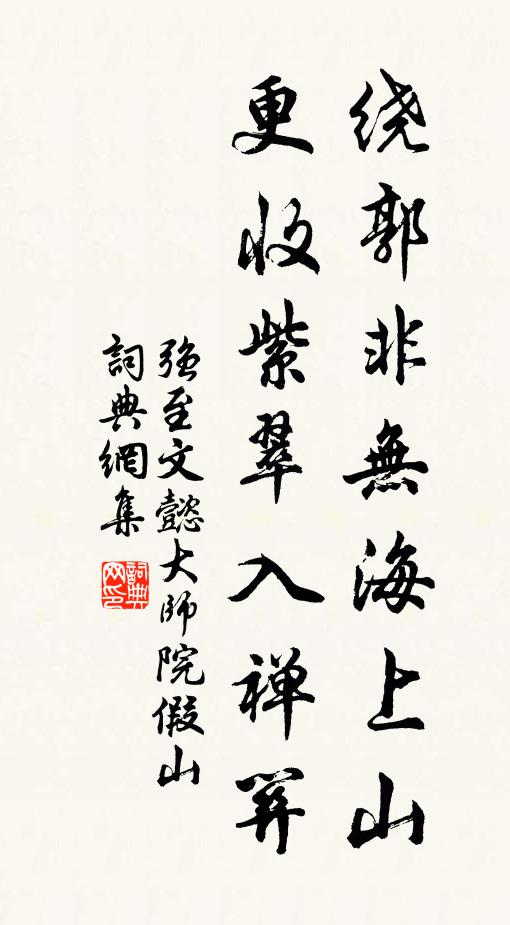 绕郭非無海上山
更收紫翠入禅関
強至文懿大師院假山
詞典網集
詞典网印